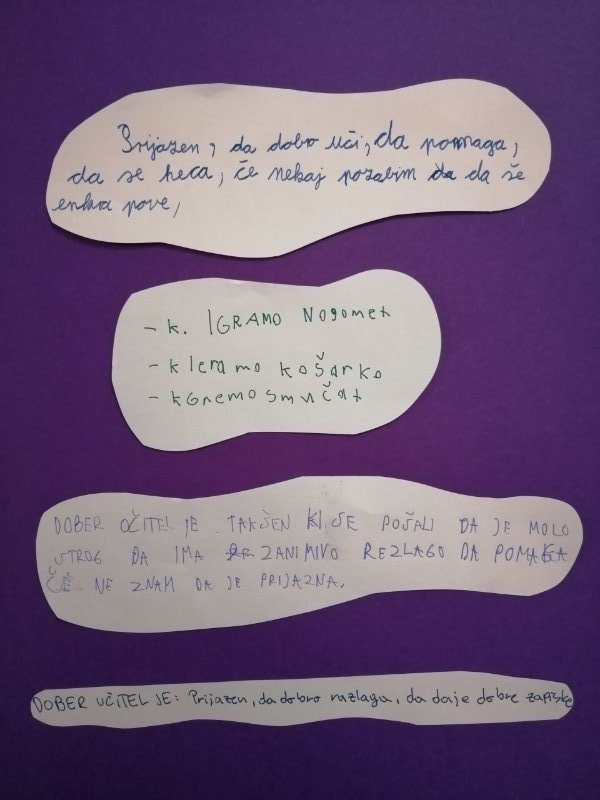 Prijazen, da dobro uči, da pomaga,
da se heca, če nekaj pozabim da da še
enkra pove,
- k. IGRAMO NOGOMET
- k IGRAMO KOŠARKO
- KGREMO SMUČAT
DOBER OČITEL JE TAKŠEN KI SE POŠALI DA JE MOLO
STROG DA IMA ZANIMIVO REZLAGO DA POMAGA
ČE NE ZNAM DA JE PRIJAZNA.
DOBER UČITEL JE: Prijazen, da dobro razlaga, da daje dobre zapiske